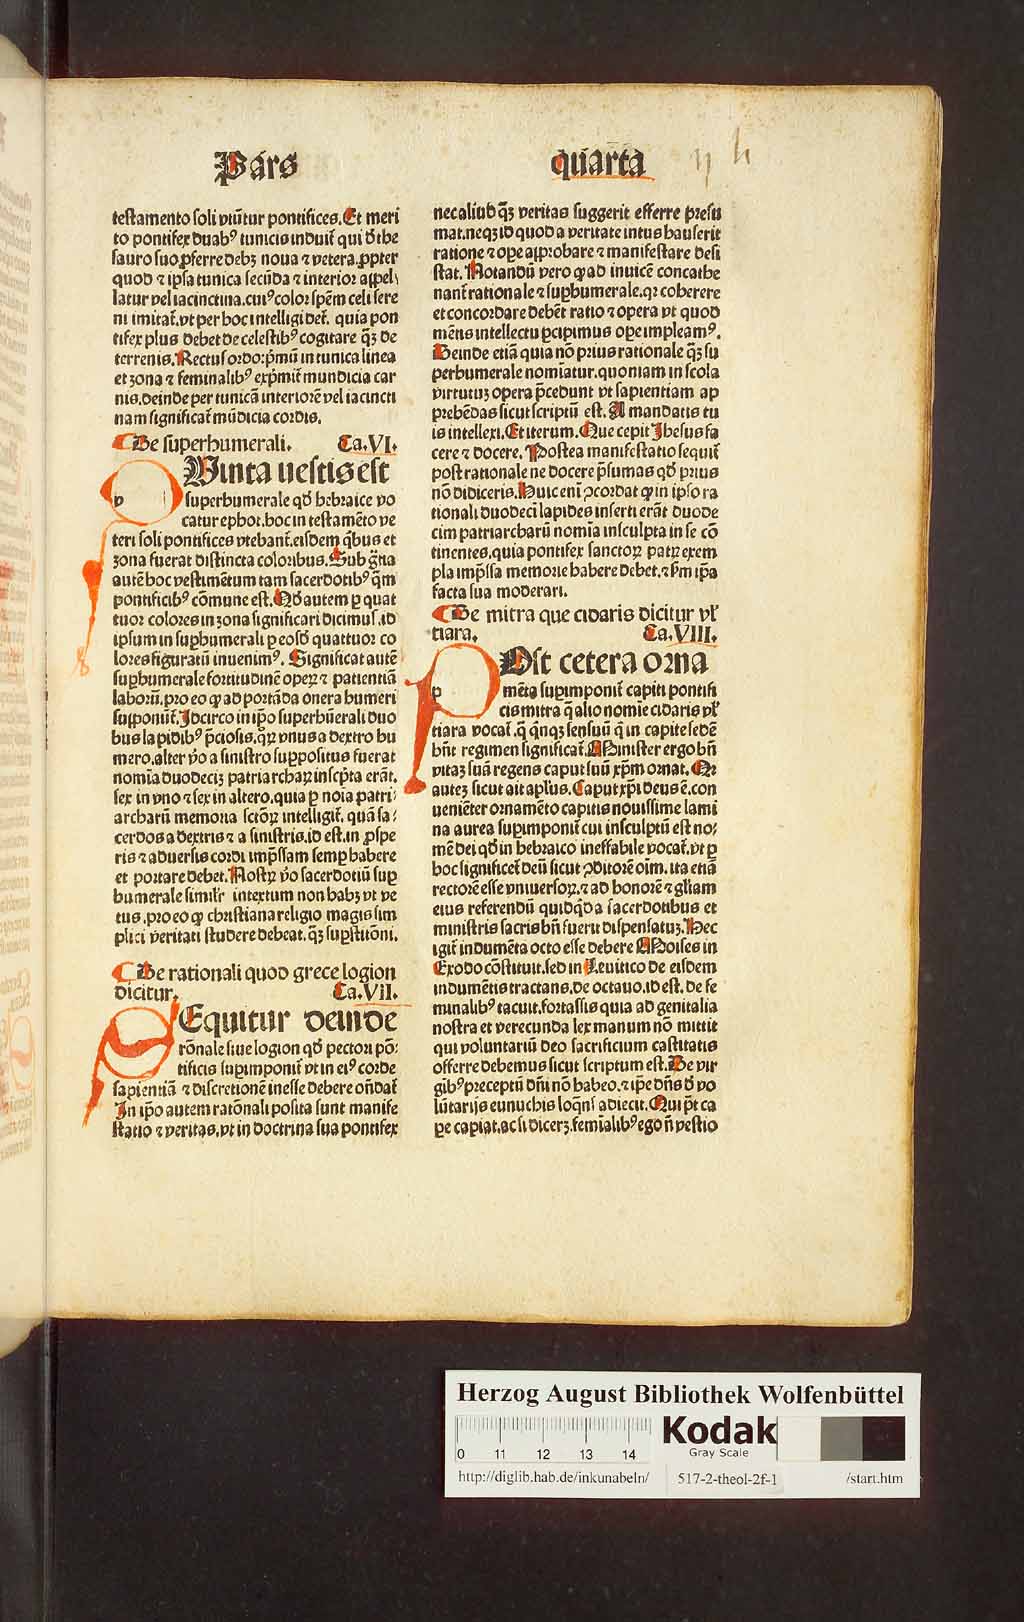 Pars quarta
testamento soli vtũtur pontifices. Et meri
to pontifex duabꝰ tunicis induit̃ qui ð the
sauro suo ꝓferre debꝫ noua ⁊ vetera. ꝓpter
quod ⁊ ipsa tunica secũda ⁊ interior appel⸗
latur vel iacinctina. cuiꝰ color spẽm celi sere
ni imitat̃. vt per hoc intelligi det̃. quia pon
tifex plus debet de celestibꝰ cogitare qꝫ de
terrenis. Rectus ordo: pꝛ̃mũ in tunica linea
et zona ⁊ feminalibꝰ expꝛ̃mit̃ mundicia car
nis. deinde per tunicã interiorẽ vel iacincti
nam significat̃ mũdicia cordis.
De superhumerali. Ca. VI.
QUinta uestis est
superhumerale qð hebraice vo
catur ephot. hoc in testamẽto ve
teri soli pontifices vtebant̃. eisdem q̃bus et
zona fuerat distincta coloribus. Sub gr̃na
autẽ hoc vestimẽtum tam sacerdotibꝰ q̃m
pontificibꝰ cõmune est. Qð autem ꝑ quat
tuor colores in zona significari dicimus. id
ipsum in suꝑhumerali ꝑ eosð quattuor co
lores figuratũ inuenimꝰ. Significat autẽ
suꝑhumerale fortitudinẽ operꝫ ⁊ patientiã
laborũ. pro eo ꝙ ad portãda onera humeri
supponũt̃. Idcirco in ip̃o superhũerali duo
bus lapidibꝰ p̃ciosis. qꝛ vnus a dextro hu
mero. alter ṽo a sinistro suppositus fuerat
nomĩa duodecim patriarchaꝝ inscp̃ta erãt.
sex in vno ⁊ sex in altero. quia ꝑ noĩa patri⸗
archarũ memoria sctõꝝ intelligit̃. quã sa⸗
cerdos a dextris ⁊ a sinistris. id est. in ꝓspe
ris ⁊ aduersis cordi imp̃ssam semꝑ habere
et portare debet. Nostrꝫ ṽo sacerdotiũ suꝑ
humerale simil̃r intextum non habꝫ vt ve
tus. pro eo ꝙ christiana religio magis sim
plici veritati studere debeat. qꝫ suꝑstitiõni.
De rationali quod grece logion
dicitur. Ca. VII.
SEquitur deinde
rõnale siue logion qð pectori põ⸗
tificis suꝑimponit̃ vt in eiꝰ corde
sapientiã ⁊ discretionẽ inesse debere oñdat̃
In ip̃o autem ratõnali posita sunt manife
statio ⁊ veritas. vt in doctrina sua pontifex
nec aliud qꝫ veritas suggerit efferre presu
mat. neqꝫ id quod a veritate intus hauserit
ratione ⁊ ope approbare ⁊ manifestare desi
stat. Notandũ vero ꝙ ad inuicẽ concathe
nant̃ rationale ⁊ suꝑhumerale. qꝛ coherere
et concordare debẽt ratio ⁊ opera vt quod
mẽtis intellectu ꝑcipimus ope impleamꝰ.
Deinde etiã quia nõ prius rationale qꝫ su
perhumerale nomiatur. quoniam in scola
virtutuꝫ opera p̃cedunt vt sapientiam ap
prehẽdas sicut scriptũ est. A mandatis tu
is intellexi. Et iterum. Que cepit Ihesus fa
cere ⁊ docere. Postea manifestatio sequit̃
post rationale ne docere p̃sumas qð prius
nõ didiceris. Huic eni ꝯcordat ꝙ in ipso ra
tionali duodecĩ lapides inserti erãt duode
cim patriarcharũ nomĩa insculpta in se cõ
tinentes. quia pontifex sanctoꝝ patꝝ exem
pla imp̃ssa memorie habere debet. ⁊ ẜm ip̃a
facta sua moderari.
De mitra que cidaris dicitur vl̃
tiara. Ca. VIII.
POst cetera orna
mẽta suꝑimponit̃ capiti pontifi
cis mitra q̃ alio nomie cidaris vl̃
tiara vocat̃. q̃ q̃nqꝫ sensuũ q̃ in capite sedẽ
hñt regimen significat̃. Minister ergo bñ
vitaꝫ suã regens caput suũ xp̃m ornat. Qꝛ
auteꝫ sicut ait apl̃us. Caput xp̃i deus ẽ. con
ueniẽter ornamẽto capitis nouissime lami
na aurea suꝑimponit̃ cui insculptũ est no⸗
mẽ dei qð in hebraico ineffabile vocat̃. vt ꝑ
hoc significet̃ deũ sicut ꝯditorẽ oĩm. ita etiã
rectorẽ esse vniuersoꝝ. ⁊ ad honorẽ ⁊ gl̃iam
eius referendũ quidq̃d a sacerdotibus et
ministris sacris bñ fuerit dispensatuꝫ. Hec
igit̃ indumẽta octo esse debere Moises in
Exodo cõstituit. sed in Leuitico de eisdem
indumẽtis tractans. de octauo. id est. de fe
minalibꝰ tacuit. fortassis quia ad genitalia
nostra et verecunda lex manum nõ mittit
qui voluntariũ deo sacrificium castitatis
offerre debemus sicut scriptum est. De vir
gibꝰ preceptũ dñi nõ habeo. ⁊ ip̃e dñs ð vo
lũtarijs eunuchis loqñs adiecit. Qui p̃t ca
pe capiat. ac si dicerꝫ. femialibꝰ ego ñ vestio
Herzog August Bibliothek Wolfenbüttel
0 11 12 13 14
Kodak
Gray Scale
http://diglib.hab.de/inkunabeln/ 517-2-theol-2f-1 /start.htm